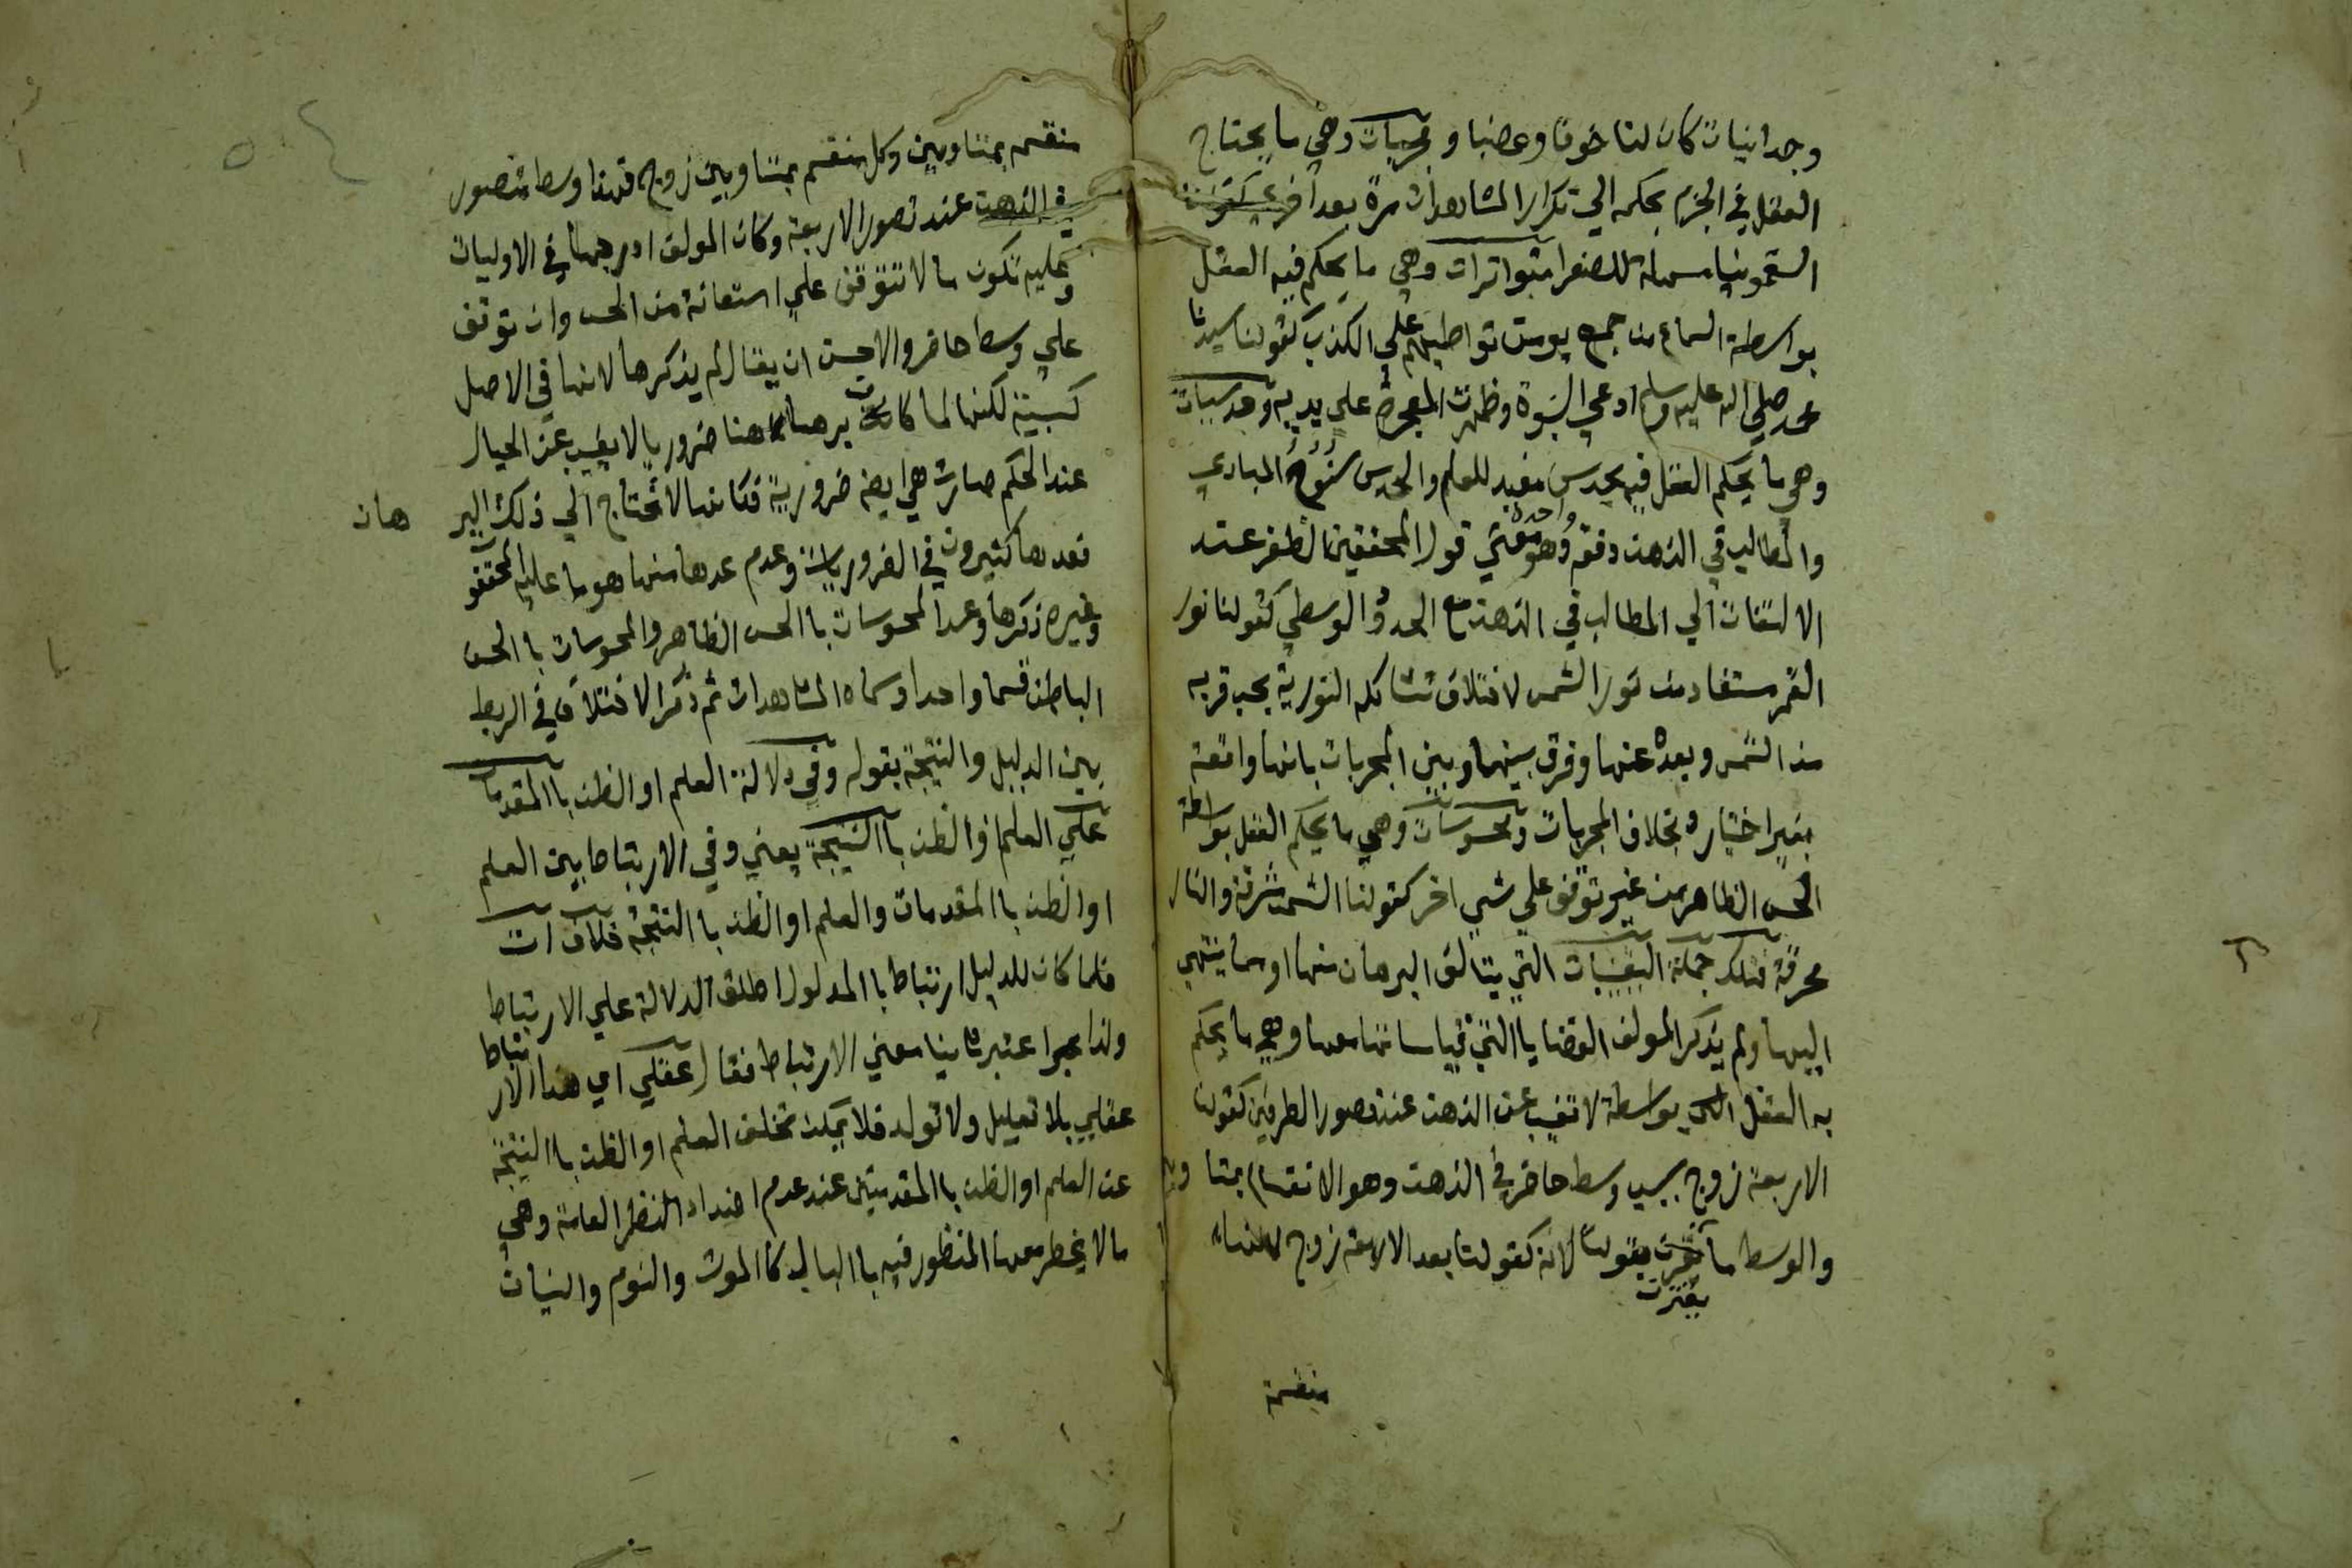 وجدانيات كان لنا خوفا وغضبا ومجربات وهي ما يحتاج
العقل في الجزم بحكمه الي تكرار المشاهدات مرة بعد اخري كقولنا
السقمونيا مسهلة للصفرا متواترات وهي ما يحكم فيه العقل
بواسطة السماع من جمع يومن تواطيهم علي الكذب كقولنا سيدنا
محمد صلي الله عليه وسلم ادعي النبوة وظهرت المعجزة علي يديه وحدسيات
وهي ما يحكم العقل فيه بحدس مفيد للعلم والحدس سنوح المبادي
والمطالب في الذهن دفعة واحدة وهو معني قول المحققين الظفر عند
الالتفات الي المطالب في الذهن مع الحدود الوسطي كقولنا نور
القمر مستفاد من نور الشمس لاختلاف تشاكله النورية بحسب قربه
من الشمس وبعده عنها وفرق بينها وبين المجربات بانها واقعة
بغير اختياره بخلاف المجربات ومحسوسات وهي ما يحكم العقل بواسطة
الحس الظاهر من غير توقف علي شي اخر كقولنا الشمس مشرقة والنار
محرقة فتلك جملة اليقينيات التي يتالف البرهان منها او مما ينتهي
اليها ولم يذكر المولف القضايا التي قياساتها معها وهي ما يحكم
به العقل بواسطة لا تغيب عن الذهن عند تصور الطرفين كقولنا
الاربعة زوج بسبب وسط حاضر في الذهن وهو الانقسام بمتساويين
والوسط ما يقترن بقولنا لانه كقولنا بعد الاربعة زوج لانها
منقسمة
منقسمه بمتساويين وكل منقسم بمتساويين زوج فهذا وسط متصور
في الذهن عند تصور الاربعة وكان المولف ادرجها في الاوليات
وعليه تكون ما لا تتوقف علي استعانة من الحس وان توقف
علي وسط حاضر والاحسن ان يقال لم يذكرها لانها في الاصل
كسبية لكنها لما كان برهانها هنا ضروريا لا يغيب عن الخيال
عند الحكم صارت هي ايضا ضرورية فكانها لا تحتاج الي ذلك البر
هان
فعدها كثيرون في الضروريات وعدم عدها منها هو ما عليه المحققون
وغيره ذكرها وعد المحسوسات باالحس الظاهر والمحسوسات باالحس
الباطن قسما واحدا وسماه المشاهدات ثم ذكر الاختلاف في الربط
بين الدليل والنتيجة بقوله وفي دلالة العلم او الظن باالمقدمات
علي العلم او الظن باالنتيجة يعني وفي الارتباط بين العلم
او الظن باالمقدمات والعلم او الظن باالنتيجة خلاف ات
فلما كان للدليل ارتباط باالمدلول اطلق الدلالة علي الارتباط
ولذا عبر اعتبر ثانيا معني الارتباط فقال عقلي اي هذا الارتباط
عقلي بلا تعليل ولا تولد فلا يمكن تخلف العلم او الظن باالنتيجة
عن العلم او الظن باالمقدمتين عند عدم اضداد النظر العامة وهي
ما لا يخطر معها المنظور فيه باالبال كاالموت والنوم والنسيان